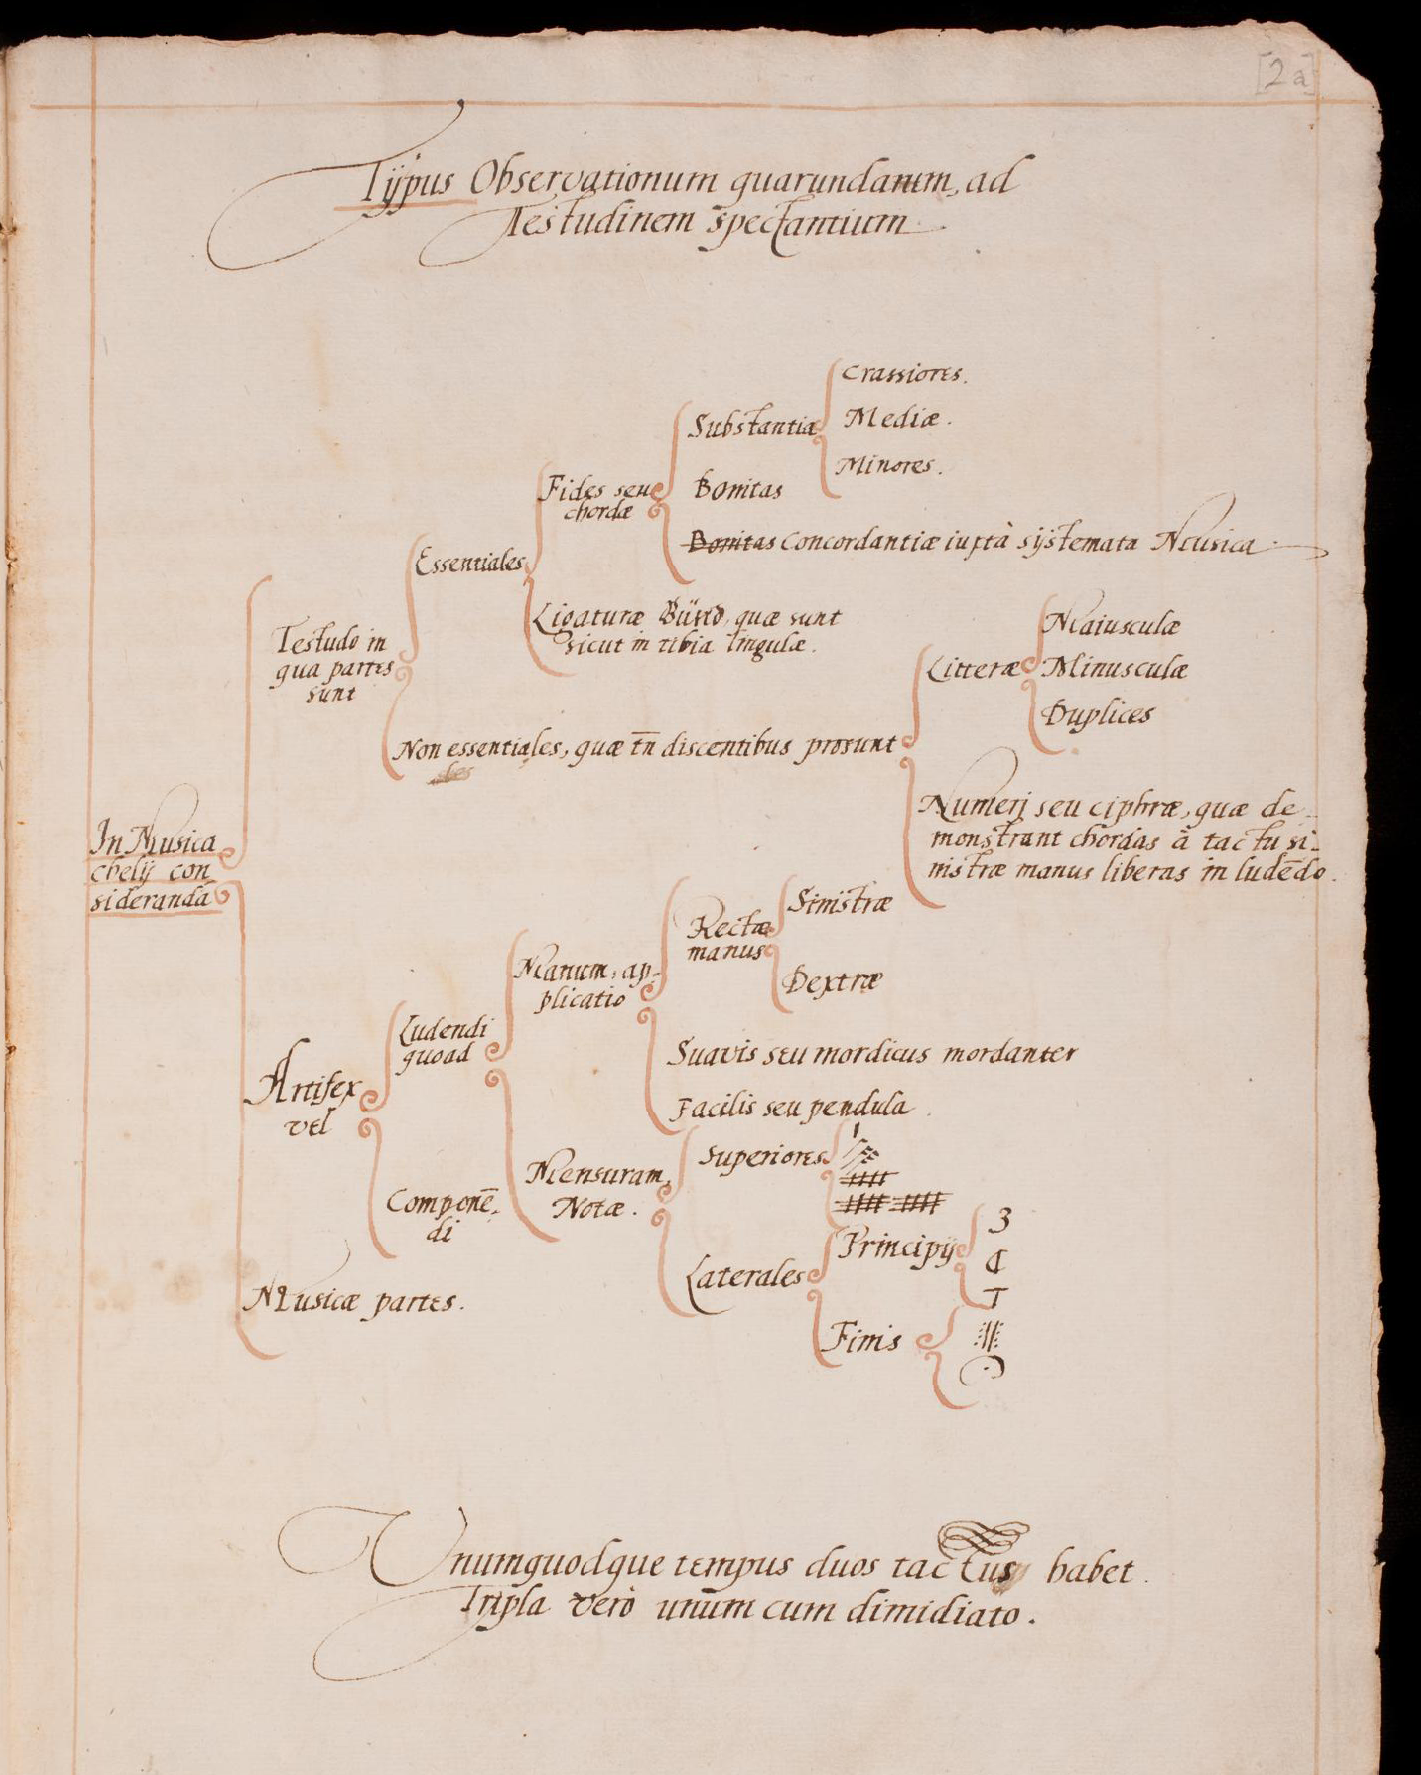 [2a]
Tÿpus Observationum quarundarum, ad
Testudinem spectantium.
Crassiores.
Substantiæ
Mediæ.
Minores.
Fides seu
chordæ
Bonitas
Bonitas Concordantiæ iuxtà sÿstemata Musica
Essentiales
Ligaturæ Bünd, quæ sunt
sicut in tibia lingulæ.
Testudo in
qua partes
sunt
Maiusculæ
Litteræ
Minusculæ
Duplices
Non essentiales, quæ tn̄ discentibus prosunt
Numerj seu ciphræ, quæ de-
monstrant chordas à tactu si-
nistræ manus liberas in ludēdo.
In Musica
chelÿ con
sideranda
Sinistræ
Rectæ
manus
Dextræ
Manum, ap-
plicatio
Suavis seu mordicus mordanter
Facilis seu pendula.
Ludendi
quoad
Artifex
vel
Superiores
Mensuram,
Notæ.
Principÿ
3
T
Laterales
Finis
Componē-
di
Musicæ partes.
Unumquodque tempus duos tactus habet.
Tripla verò unum cum dimidiato.